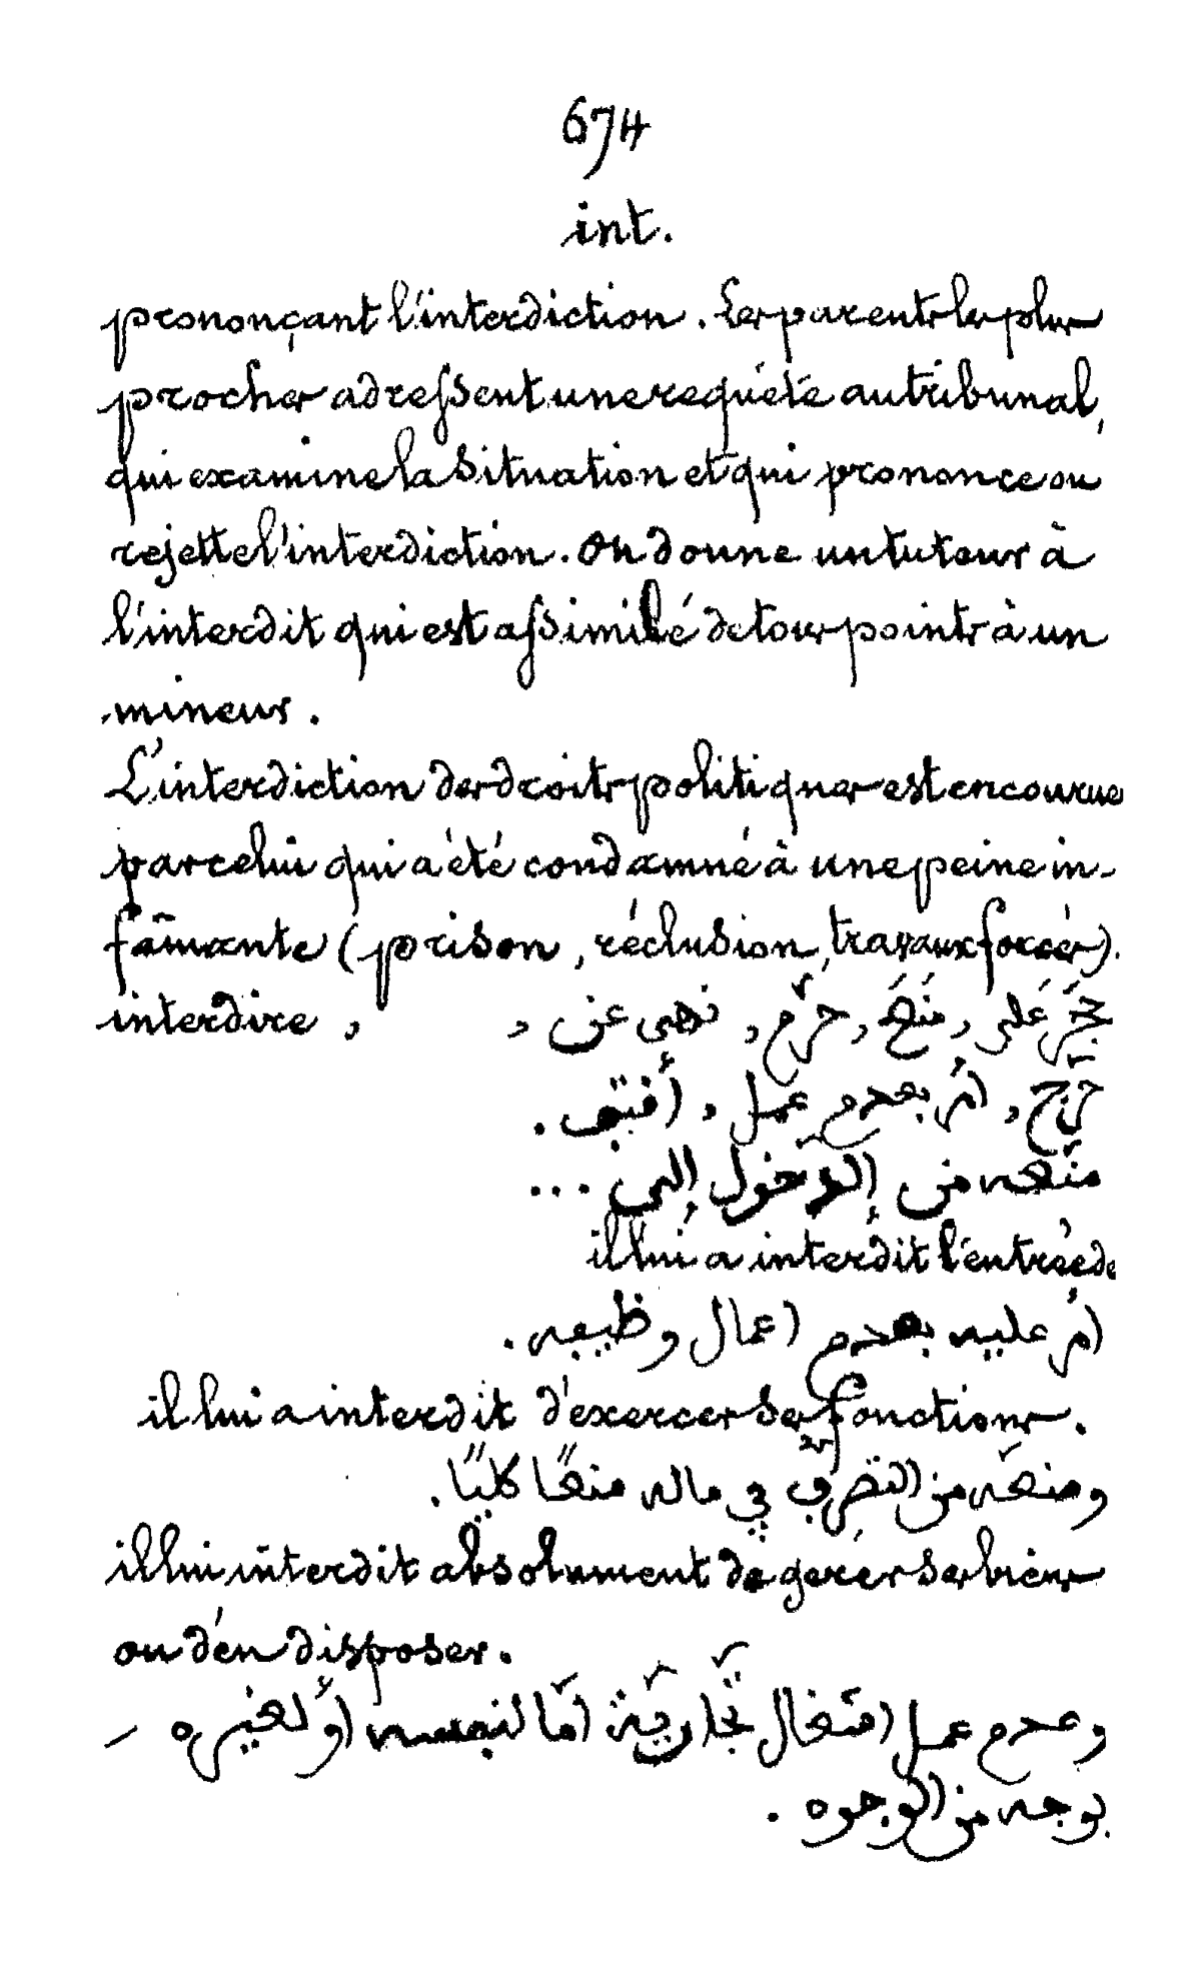 674
int.
prononçant l'interdiction. Les parents les plus
proches adressent une requête au tribunal,
qui examine la situation et qui prononce ou
rejette l'interdiction. On donne un tuteur à
l'interdit qui est assimilé de tous points à un
mineur.
L'interdiction des droits politiques est encourue
par celui qui a été condamné à une peine in-
famante (prison, réclusion, travaux forcés).
interdire, حَجَرَ عَلى, مَنَعَ, حرَّم, نهى عن,
حَرَّج, امُر بعدم عمل,
منَعه من الدخول إلى ...
il lui a interdit l'entrée de
امُر عليه بعدم اعمال وظيفه.
il lui a interdit d'exercer ses fonctions.
ومنعَه من التصرّف في ماله منعًا كليًا.
il lui interdit absolument de gérer ses biens
ou d'en disposer.
وعدم عمل اشغال تجَاريَّة امَّا لنفسه أو لغيره
بوجه من الوجوه.